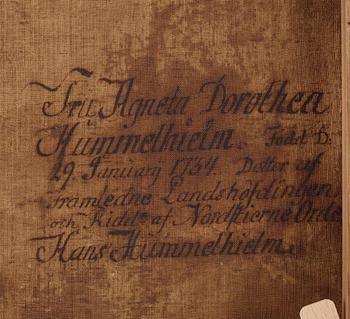 Fru Agneta Dorothea
Hummelhielm. Född D:
29 January 1734. Dotter af
framledne Landshöfdingen
och Ridd: af Nordstierne Orde
Hans Hummelhielm.